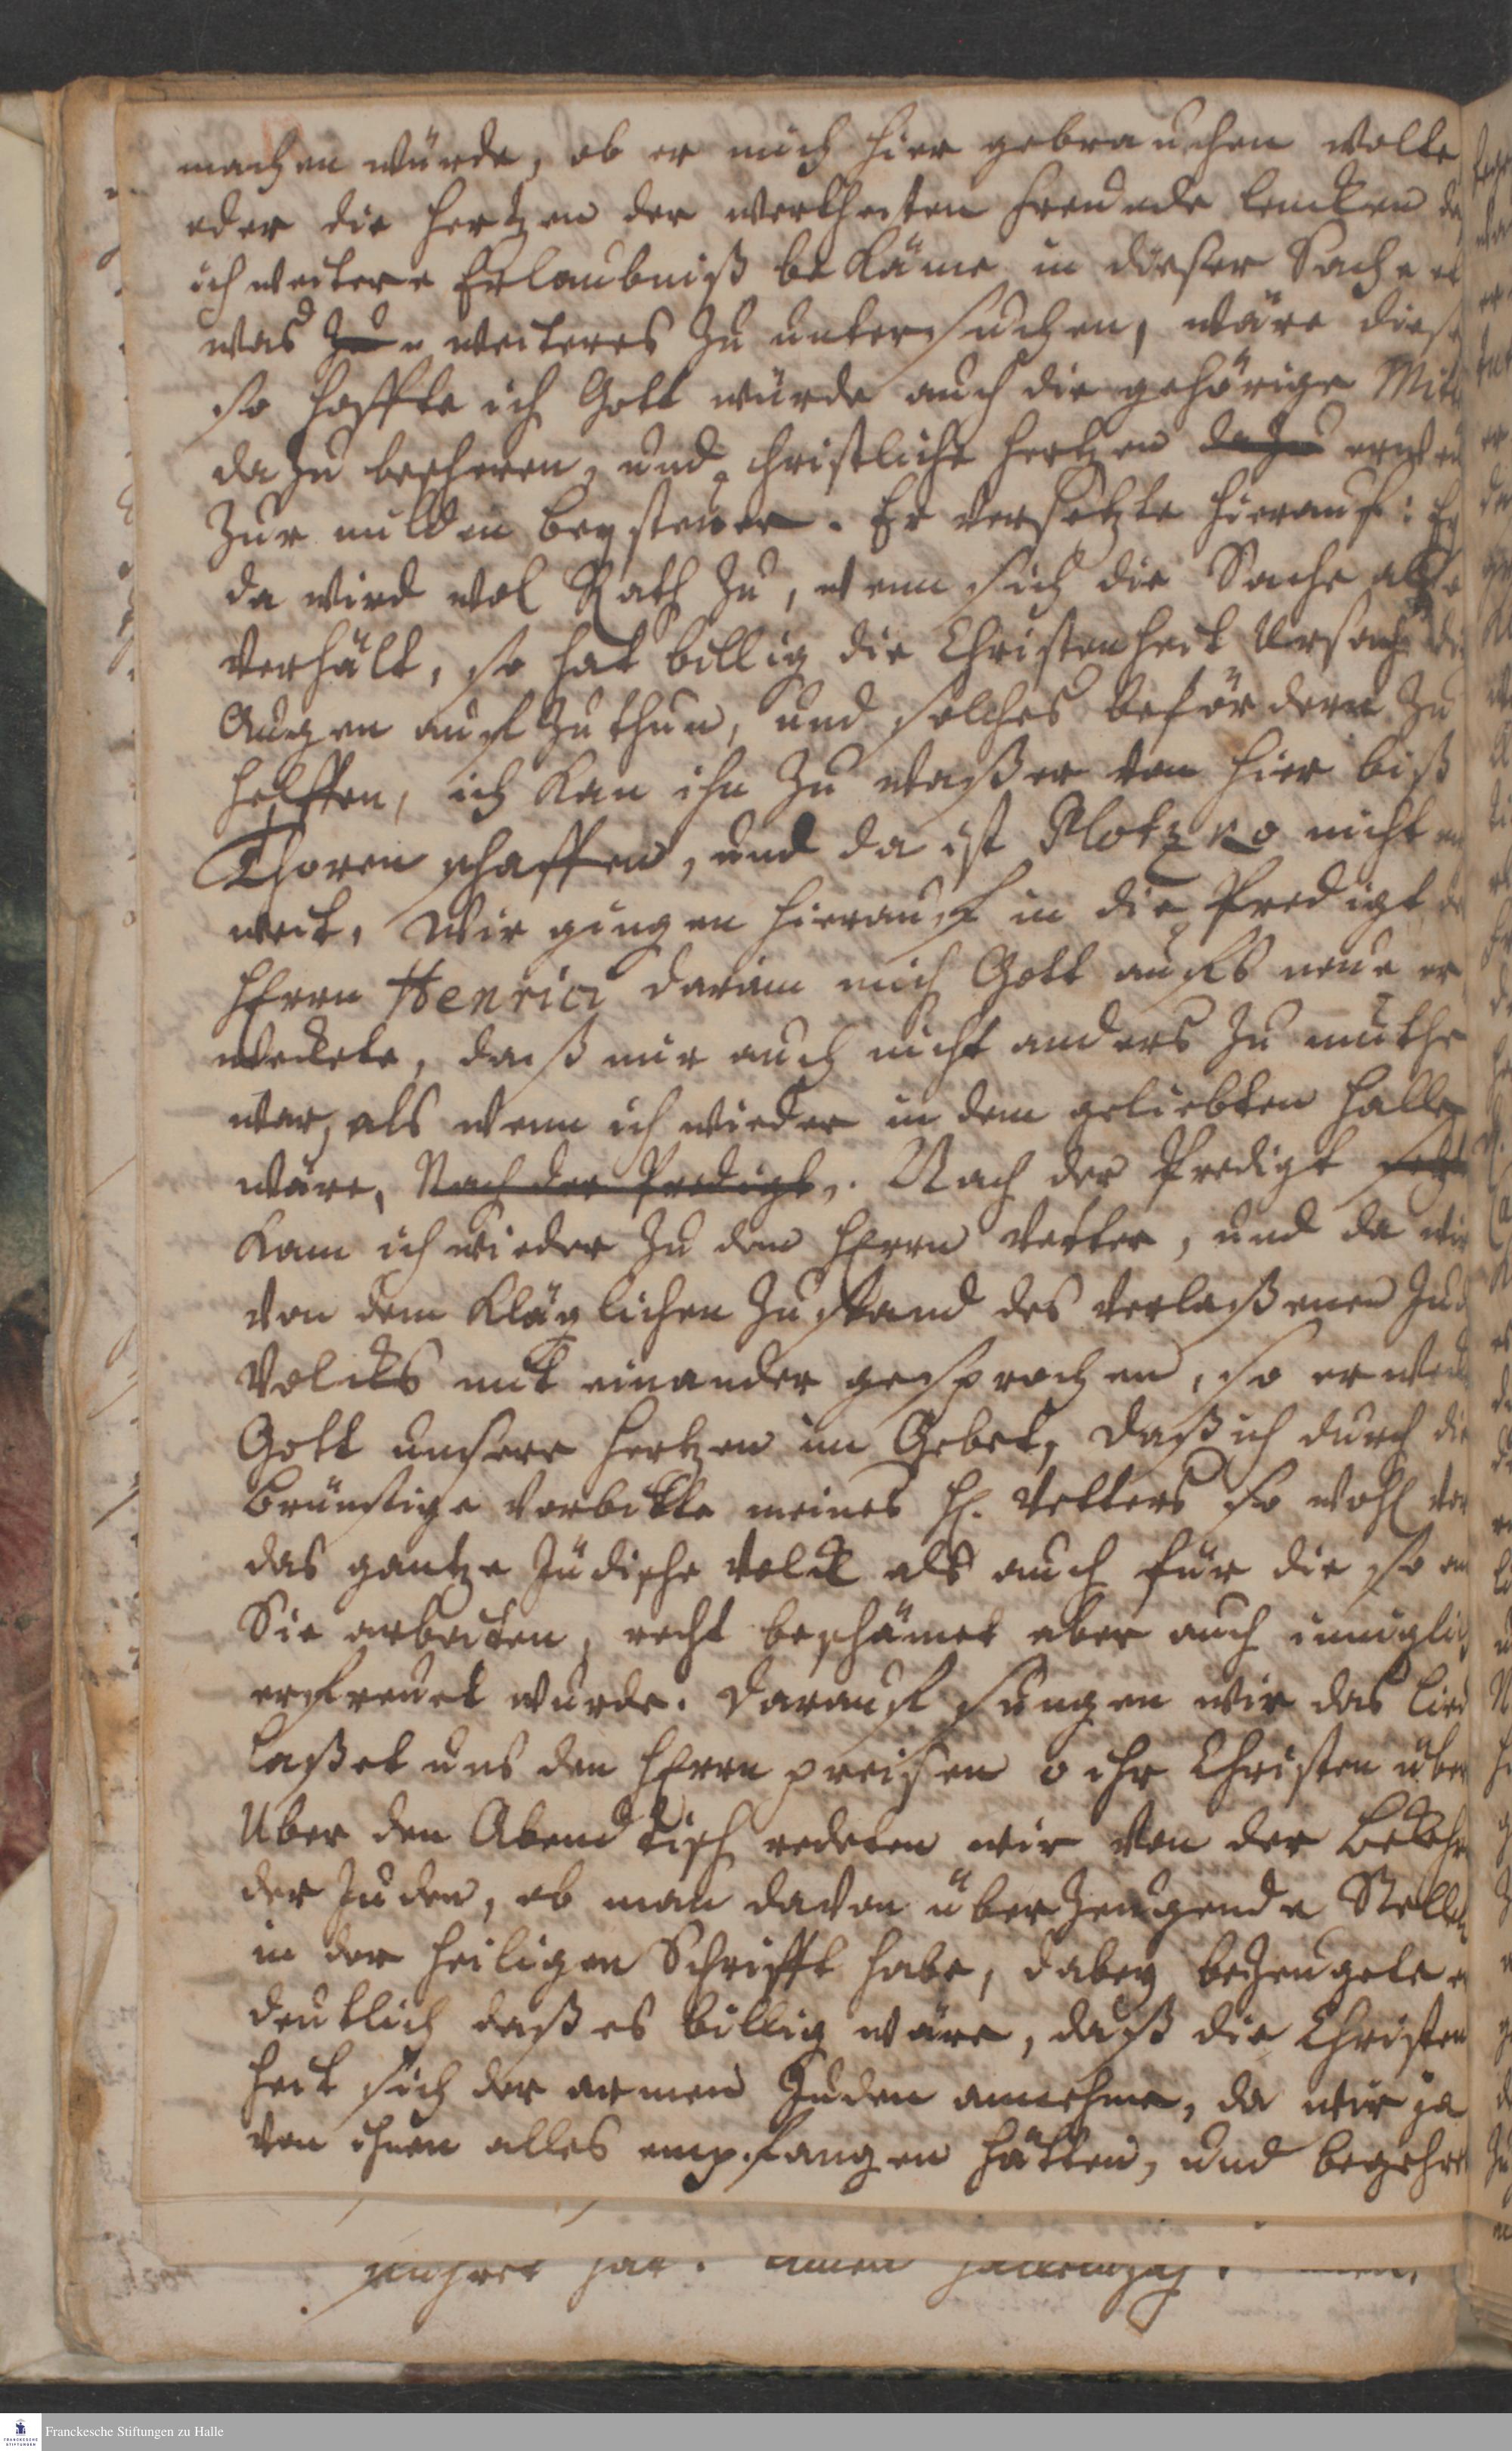 machen würde, ob er mich hier gebrauchen wolte
oder die Hertzen der werthesten Freunde lencken da
ich weitere Erlaubniß bekäme in dieser Sache et
was zu weiteres zu untersuchen, wäre dieses
so hoffte ich Gott würde auch die gehörige Mit
dazu bescheren, und christliche Hertzen dazu erwe
zur milden beysteuer. Er versetzte hierauf: Ey
da wird wol Rath zu, wenn sich die Sache also
verhält, so hat billig die Christenheit Ursach die
Augen auf zu thun, und solches befördern zu
helffen, ich kan ihn zu waßer von hier biß
Thoren schaffen, und da ist Plotzko nicht
weit. Wir gingen hierauf in die Predigt
HErrn Henrici darinn mich Gott aufs neue er
weckete, daß mir auch nicht anders zu muthe
war, als wenn ich wieder in dem geliebten Halle
wäre, Nach der Predigt. Nach der Predigt
kam ich wieder zu dem HErrn Vetter, und da wir
von dem kläglichen Zustand des verlaßenen Jud
Volcks mit einander gesprochen, so erweck
Gott unsere Hertzen im Gebet, daß ich durch die
brünstige Vorbitte meines H. Vetters so wohl vor
das gantze Jüdische Volck als auch für die so an
Sie arbeiten, recht beschämet aber auch inniglich
erfreuet wurde. Darauf sungen wir das Lied
Laßet uns den HErrn preisen o ihr Christen über
Uber den Abend tisch redeten wir von der Bekehr
der Juden, ob man davon überzeugende Stellen
in der heiligen Schrifft habe, dabey bezeugete er
deutlich daß es billig wäre, daß die Christen
heit sich der armen Juden annehme, da wir ja
von ihnen alles empfangen hätten, und begehre
Franckesche Stiftungen zu Halle